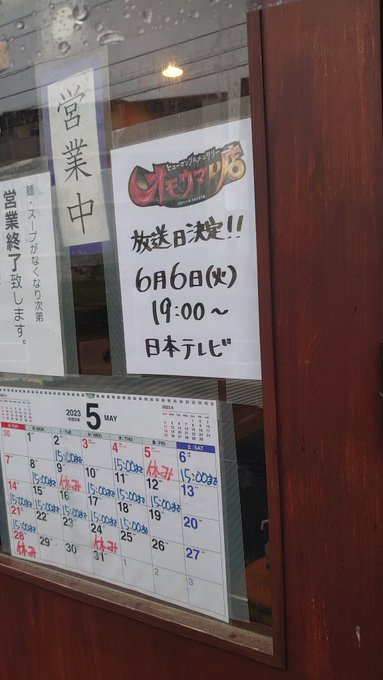 営業中
麺・スープがなくなり次第
営業終了致します。
ヒューマングルメンタリー
オモウマい店
放送日決定!!
6月6日(火)
19:00〜
日本テレビ
2023 5 MAY
土/SAT
30 1 2 3 4 5 6
15:00まで 15:00まで 休み 15:00まで
7 8 9 10 11 12 13
休み 15:00まで 15:00まで 15:00まで
14 15 16 17 18 19 20
15:00まで 15:00まで 15:00まで 15:00まで 15:00まで
21 22 23 24 25 26 27
15:00まで 休み
28 29 30 31 1 2 3
休み